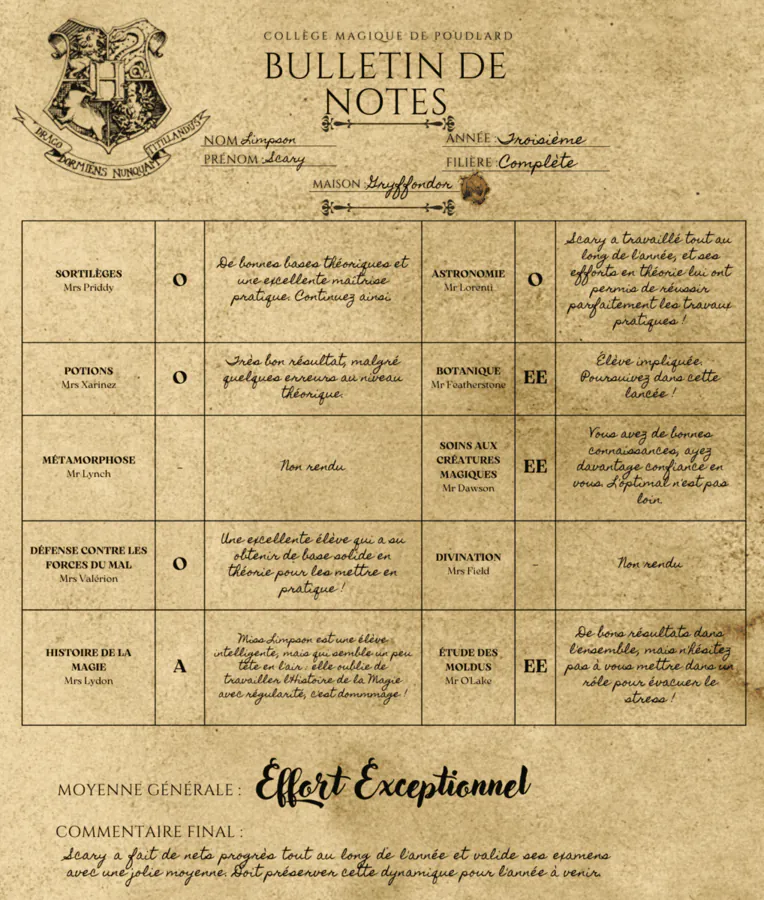 COLLÈGE MAGIQUE DE POUDLARD
BULLETIN DE
NOTES
DRACO
DORMIENS NUNQUAM
TITILLANDUS
H
NOM : Limpson
PRÉNOM : Scary
ANNÉE : Troisième
FILIÈRE : Complète
MAISON : Gryffondor
SORTILÈGES
Mrs Priddy
O
De bonnes bases théoriques et
une excellente maîtrise
pratique. Continuez ainsi.
ASTRONOMIE
Mr Lorenti
O
Scary a travaillé tout au
long de l'année, et ses
efforts en théorie lui ont
permis de réussir
parfaitement les travaux
pratiques !
POTIONS
Mrs Xarinez
O
Très bon résultat, malgré
quelques erreurs au niveau
théorique.
BOTANIQUE
Mr Featherstone
EE
Élève impliquée.
Poursuivez dans cette
lancée !
MÉTAMORPHOSE
Mr Lynch
-
Non rendu
SOINS AUX
CRÉATURES
MAGIQUES
Mr Dawson
EE
Vous avez de bonnes
connaissances, ayez
davantage confiance en
vous. L'optimal n'est pas
loin.
DÉFENSE CONTRE LES
FORCES DU MAL
Mrs Valérion
O
Une excellente élève qui a su
obtenir de base solide en
théorie pour les mettre en
pratique !
DIVINATION
Mrs Field
-
Non rendu
HISTOIRE DE LA
MAGIE
Mrs Lydon
A
Miss Limpson est une élève
intelligente, mais qui semble un peu
tête en l'air : elle oublie de
travailler l'Histoire de la Magie
avec régularité, c'est dommmage !
ÉTUDE DES
MOLDUS
Mr O'Lake
EE
De bons résultats dans
l'ensemble, mais n'hésitez
pas à vous mettre dans un
rôle pour évacuer le
stress !
MOYENNE GÉNÉRALE : Effort Exceptionnel
COMMENTAIRE FINAL :
Scary a fait de nets progrès tout au long de l'année et valide ses examens
avec une jolie moyenne. Doit préserver cette dynamique pour l'année à venir.